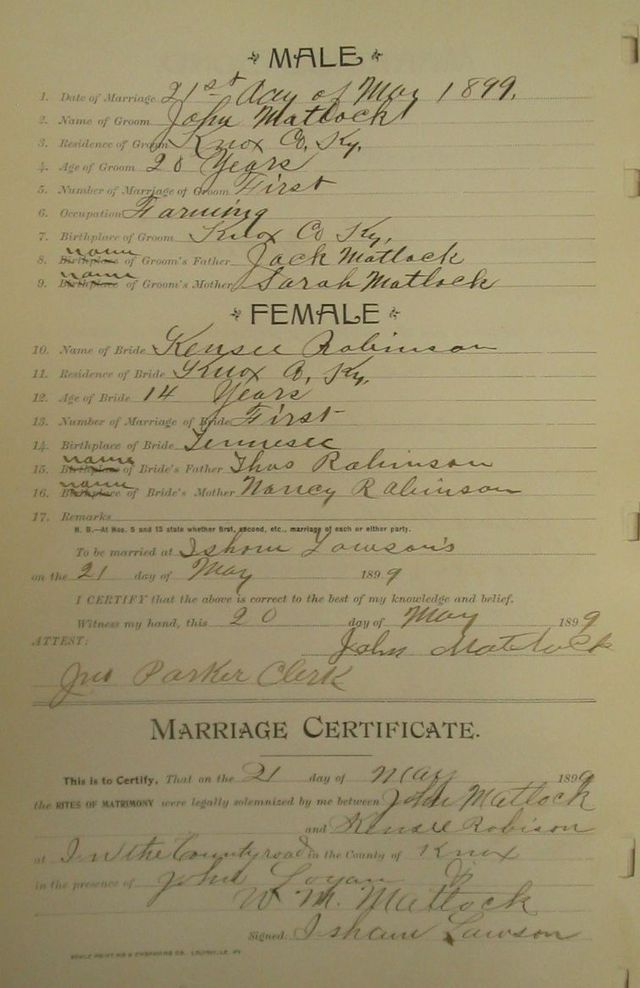 MALE
1. Date of Marriage 21st day of May 1899.
2. Name of Groom John Matlock
3. Residence of Groom Knox Co, Ky.
4. Age of Groom 20 Years
5. Number of Marriage of Groom First
6. Occupation Farming
7. Birthplace of Groom Knox Co Ky,
name
8. Birthplace of Groom's Father Jack Matlock
name
9. Birthplace of Groom's Mother Sarah Matlock
FEMALE
10. Name of Bride Kensee Robinson
11. Residence of Bride Knox Co, Ky.
12. Age of Bride 14 Years
13. Number of Marriage of Bride First
14. Birthplace of Bride Tennesee
name
15. Birthplace of Bride's Father Thos Robinson
name
16. Birthplace of Bride's Mother Nancy Robinson
17. Remarks
N. B.—At Nos. 5 and 13 state whether first, second, etc., marriage of each or either party.
To be married at Ishom Lawson's
on the 21 day of May 1899
I CERTIFY that the above is correct to the best of my knowledge and belief.
Witness my hand, this 20 day of May 1899
ATTEST: John Matlock
Jno Parker Clerk
MARRIAGE CERTIFICATE.
This is to Certify, That on the 21 day of May 1899
the RITES OF MATRIMONY were legally solemnized by me between John Matlock
and Kensee Robison
at In the County road in the County of Knox
in the presence of John Logan Jr
W. M. Matlock
Signed Isham Lawson
PRINTING & ENGRAVING CO. LOUISVILLE, KY